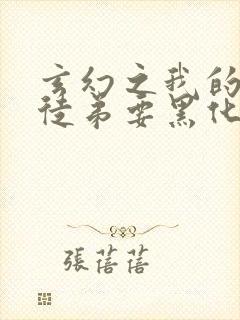 玄幻之我的
徒弟要黑化
張蓓蓓